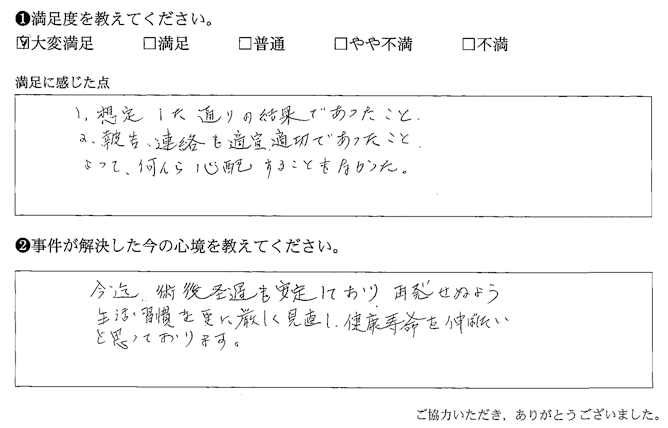 ❶満足度を教えてください。
☑大変満足 □満足 □普通 □やや不満 □不満
満足に感じた点
1. 想定した通りの結果であったこと.
2. 報告、連絡も適宜、適切であったこと.
よって、何んら心配することもなかった。
❷事件が解決した今の心境を教えてください。
今迄、術後経過も安定しており、再発せぬよう
生活習慣を更に厳しく見直し、健康寿命を伸ばしたい
と思っております。
ご協力いただき、ありがとうございました。